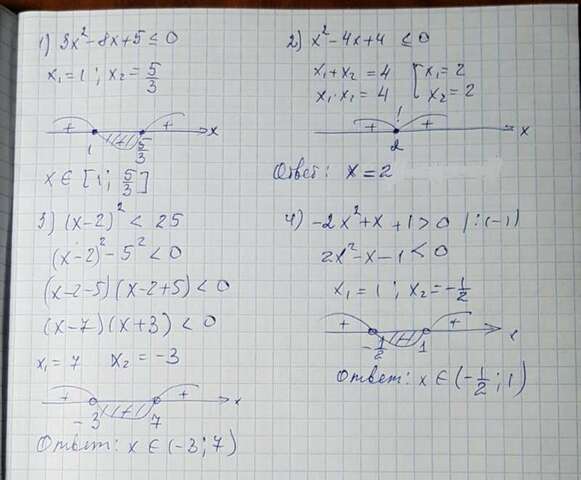 1) 3x²-8x+5≤0
x₁=1; x₂=5/3
+ (+) + x
1 5/3
x∈[1; 5/3]
2) x²-4x+4 ≤0
x₁+x₂=4 [x₁=2
x₁·x₁=4 x₂=2
+ + x
2
Ответ: x=2
3) (x-2)²< 25
(x-2)²-5²<0
(x-2-5)(x-2+5)<0
(x-7)(x+3)<0
x₁=7 x₂=-3
+ (+) + x
-3 7
Ответ: x∈(-3;7)
4) -2x²+x+1>0 |:(-1)
2x²-x-1<0
x₁=1; x₂=-1/2
+ (+) + x
-1/2 1
Ответ: x∈(-1/2;1)